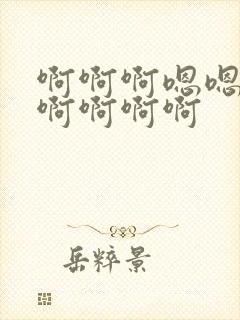 啊啊啊嗯嗯
啊啊啊啊
岳粹景